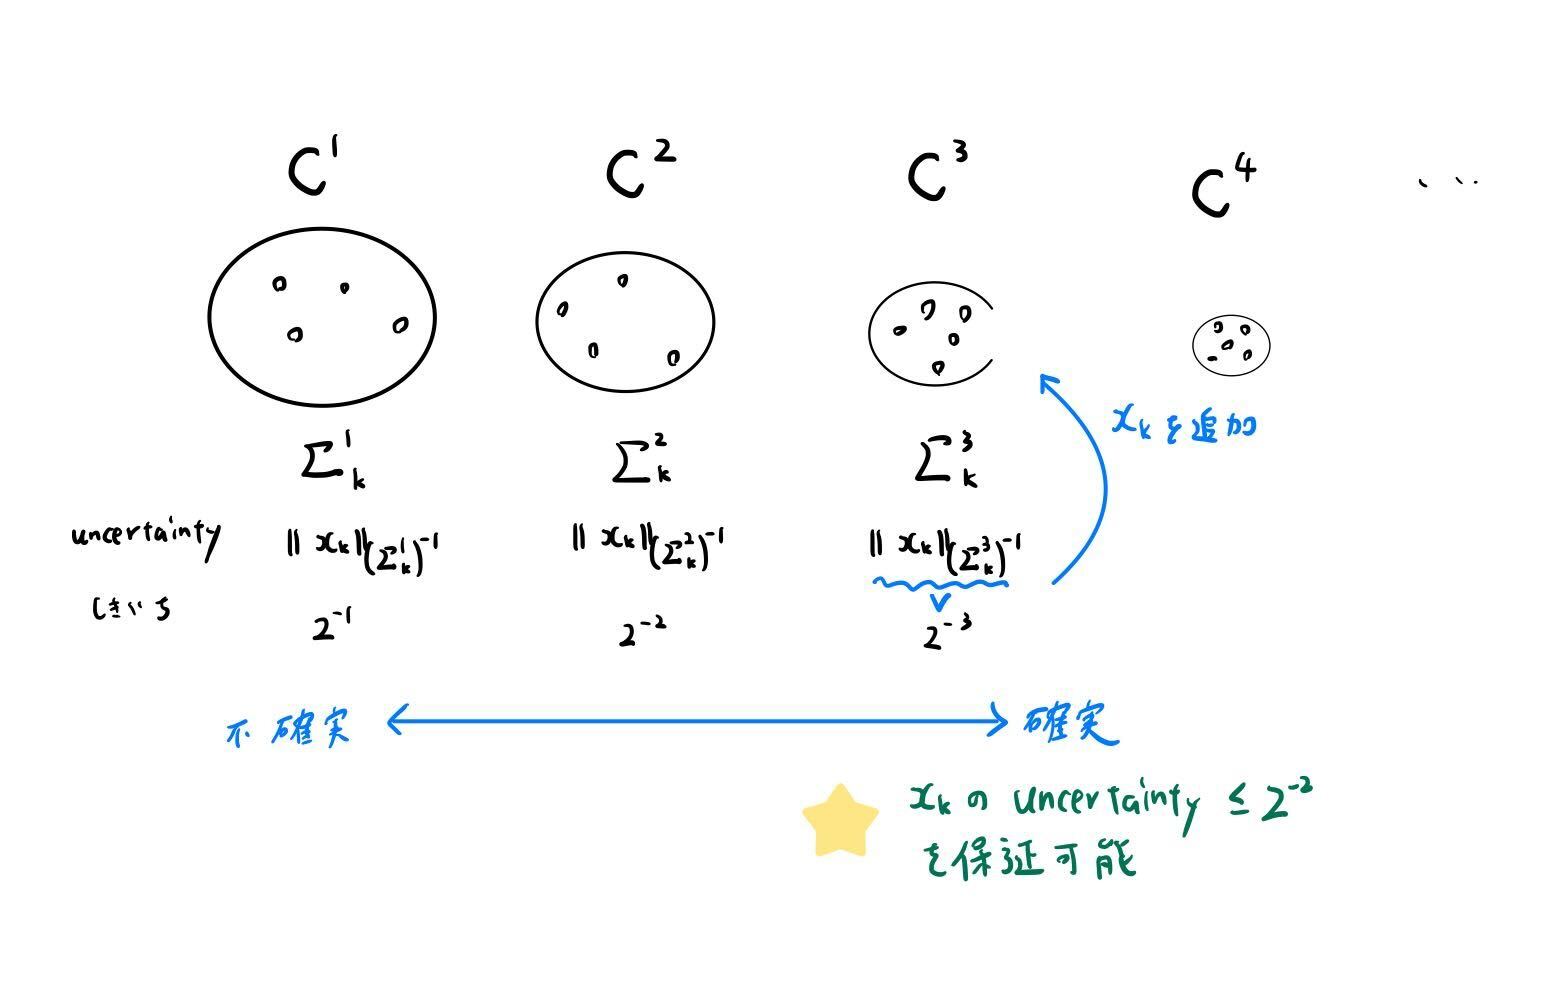 C^1 C^2 C^3 C^4 ...
Σ_k^1 Σ_k^2 Σ_k^3
x_kを追加
uncertainty ||x_k||_(Σ_k^1)^-1 ||x_k||_(Σ_k^2)^-1 ||x_k||_(Σ_k^3)^-1
しきいち 2^-1 2^-2 2^-3
不確実 確実
x_kの uncertainty ≤ 2^-2
を保証可能